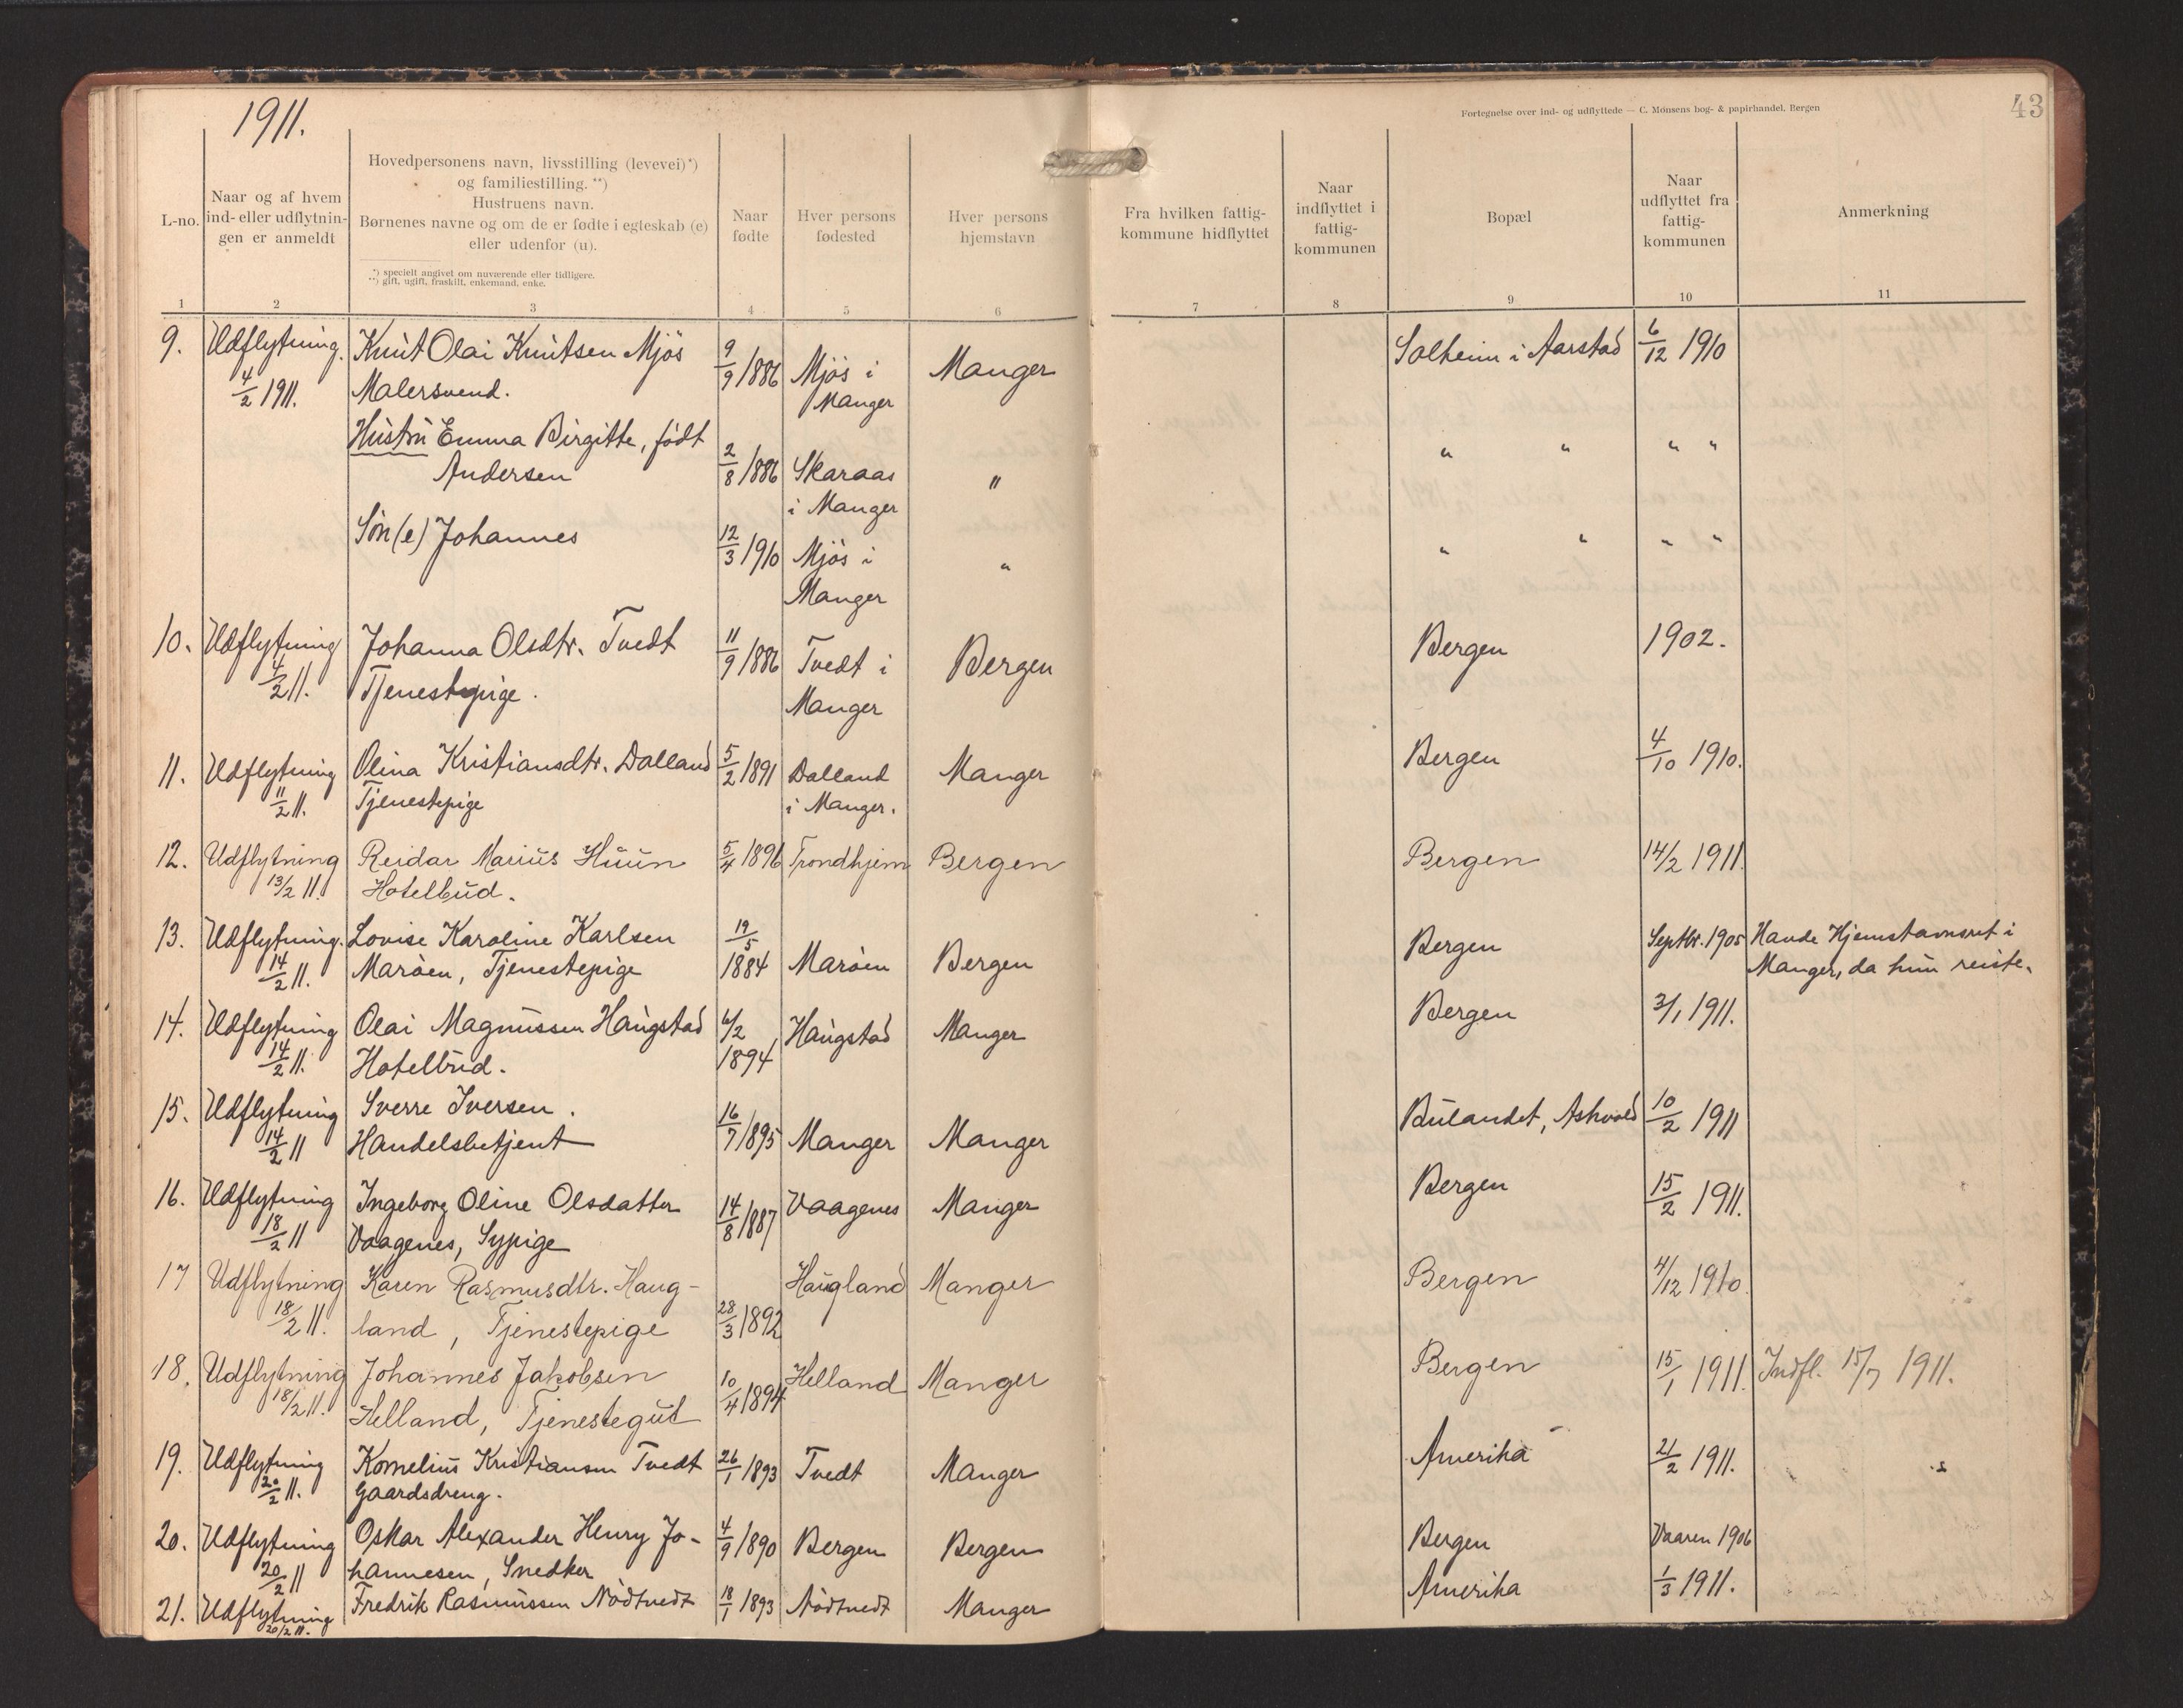 1911.
Fortegnelse over ind- og udflyttede — C. Monsens bog- & papirhandel, Bergen
43
L-no.
Naar og af hvem
ind- eller udflytnin-
gen er anmeldt
Hovedpersonens navn, livsstilling (levevei)*)
og familiestilling. **)
Hustruens navn.
Børnenes navne og om de er fødte i egteskab (e)
eller udenfor (u).
*) specielt angivet om nuværende eller tidligere.
**) gift, ugift, fraskilt, enkemand, enke.
Naar
fødte
Hver persons
fødested
Hver persons
hjemstavn
Fra hvilken fattig-
kommune hidflyttet
Naar
indflyttet i
fattig-
kommunen
Bopæl
Naar
udflyttet fra
fattig-
kommunen
Anmerkning
1 2 3 4 5 6 7 8 9 10 11
9. Udflytning. Knut Olai Knutsen Mjös 9/9 1886 Mjös i Manger Solheim i Aarstad 6/12 1910
4/2 1911. Malersvend. Manger
Hustru Emma Birgitte, født 2/8 1886 Skaraas " " " " "
Andersen i Manger
Søn (e) Johannes 12/3 1910 Mjös i " " " " "
Manger
10. Udflytning Johanna Olsdtr. Tvedt 11/9 1886 Tvedt i Bergen Bergen 1902.
4/2 11. Tjenestepige. Manger
11. Udflytning Olina Kristiansdtr. Dalland 5/2 1891 Dalland Manger Bergen 4/10 1910.
11/2 11. Tjenestepige i Manger.
12. Udflytning Reidar Marius Huun 5/4 1896 Trondhjem Bergen Bergen 14/2 1911.
13/2 11. Hotelbud.
13. Udflytning. Lovise Karoline Karlsen 19/5 Bergen Septbr. 1905 Havde Hjemstavnsret i
14/2 11. Marøen, Tjenestepige 1884 Marøen Bergen Manger, da hun reiste.
14. Udflytning Olai Magnussen Haugstad 6/2 Haugstad Manger Bergen 3/1 1911.
14/2 11. Hotelbud. 1894
15. Udflytning Sverre Iversen. 16/7 1895 Manger Manger Bulandet, Askvold 10/2 1911
14/2 11 Handelsbetjent
16. Udflytning Ingeborg Oline Olsdatter 14/8 1887 Vaagenes Manger Bergen 15/2 1911.
18/2 11 Vaagenes, Sypige
17 Udflytning Karen Rasmusdtr. Haug- Haugland Manger Bergen 4/12 1910.
18/2 11. land, Tjenestepige 28/3 1892
18. Udflytning Johannes Jakobsen 10/4 1894 Helland Manger Bergen 15/1 1911. Indfl. 15/7 1911.
18/2 11. Helland, Tjenestegut
19. Udflytning Kornelius Kristiansen Tvedt 26/1 1893 Tvedt Manger Amerika 21/2 1911.
20/2 11. Gaardsdreng.
20. Udflytning Oskar Alexander Henry Jo- 4/9 1890 Bergen Bergen Bergen Vaaren 1906
20/2 11 hannesen, Snedker
21. Udflytning Fredrik Rasmussen Nødtvedt 18/1 1893 Nødtvedt Manger Amerika 1/3 1911.
20/2 11.